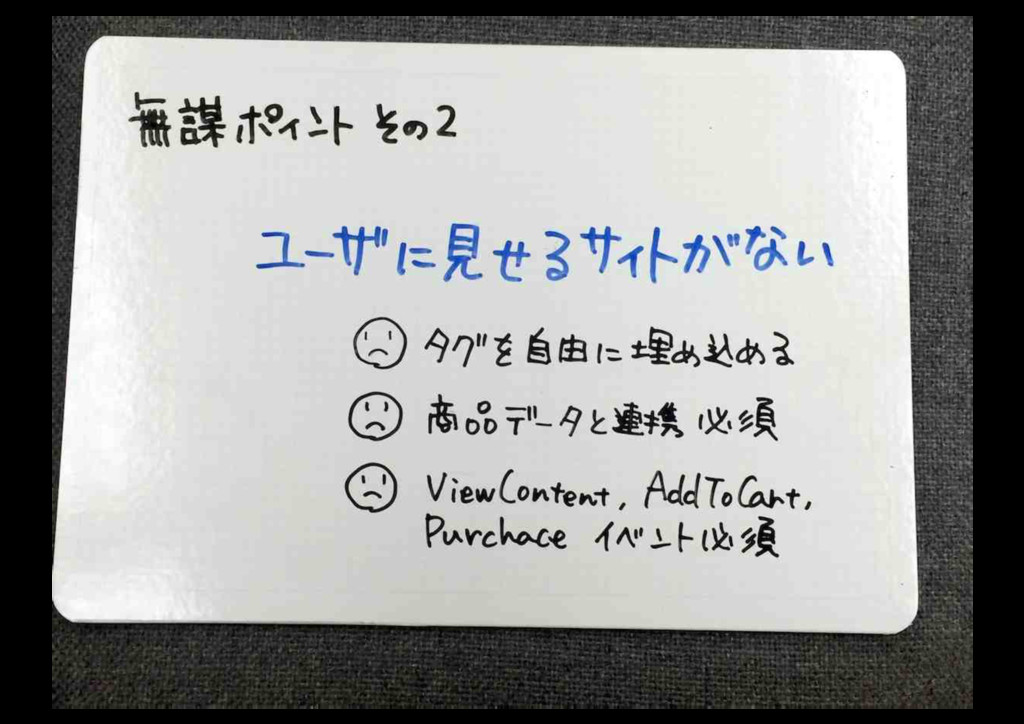 無謀ポイント その2
ユーザに見せるサイトがない
タグを自由に埋め込める
商品データと連携必須
ViewContent, AddToCart,
Purchace イベント必須